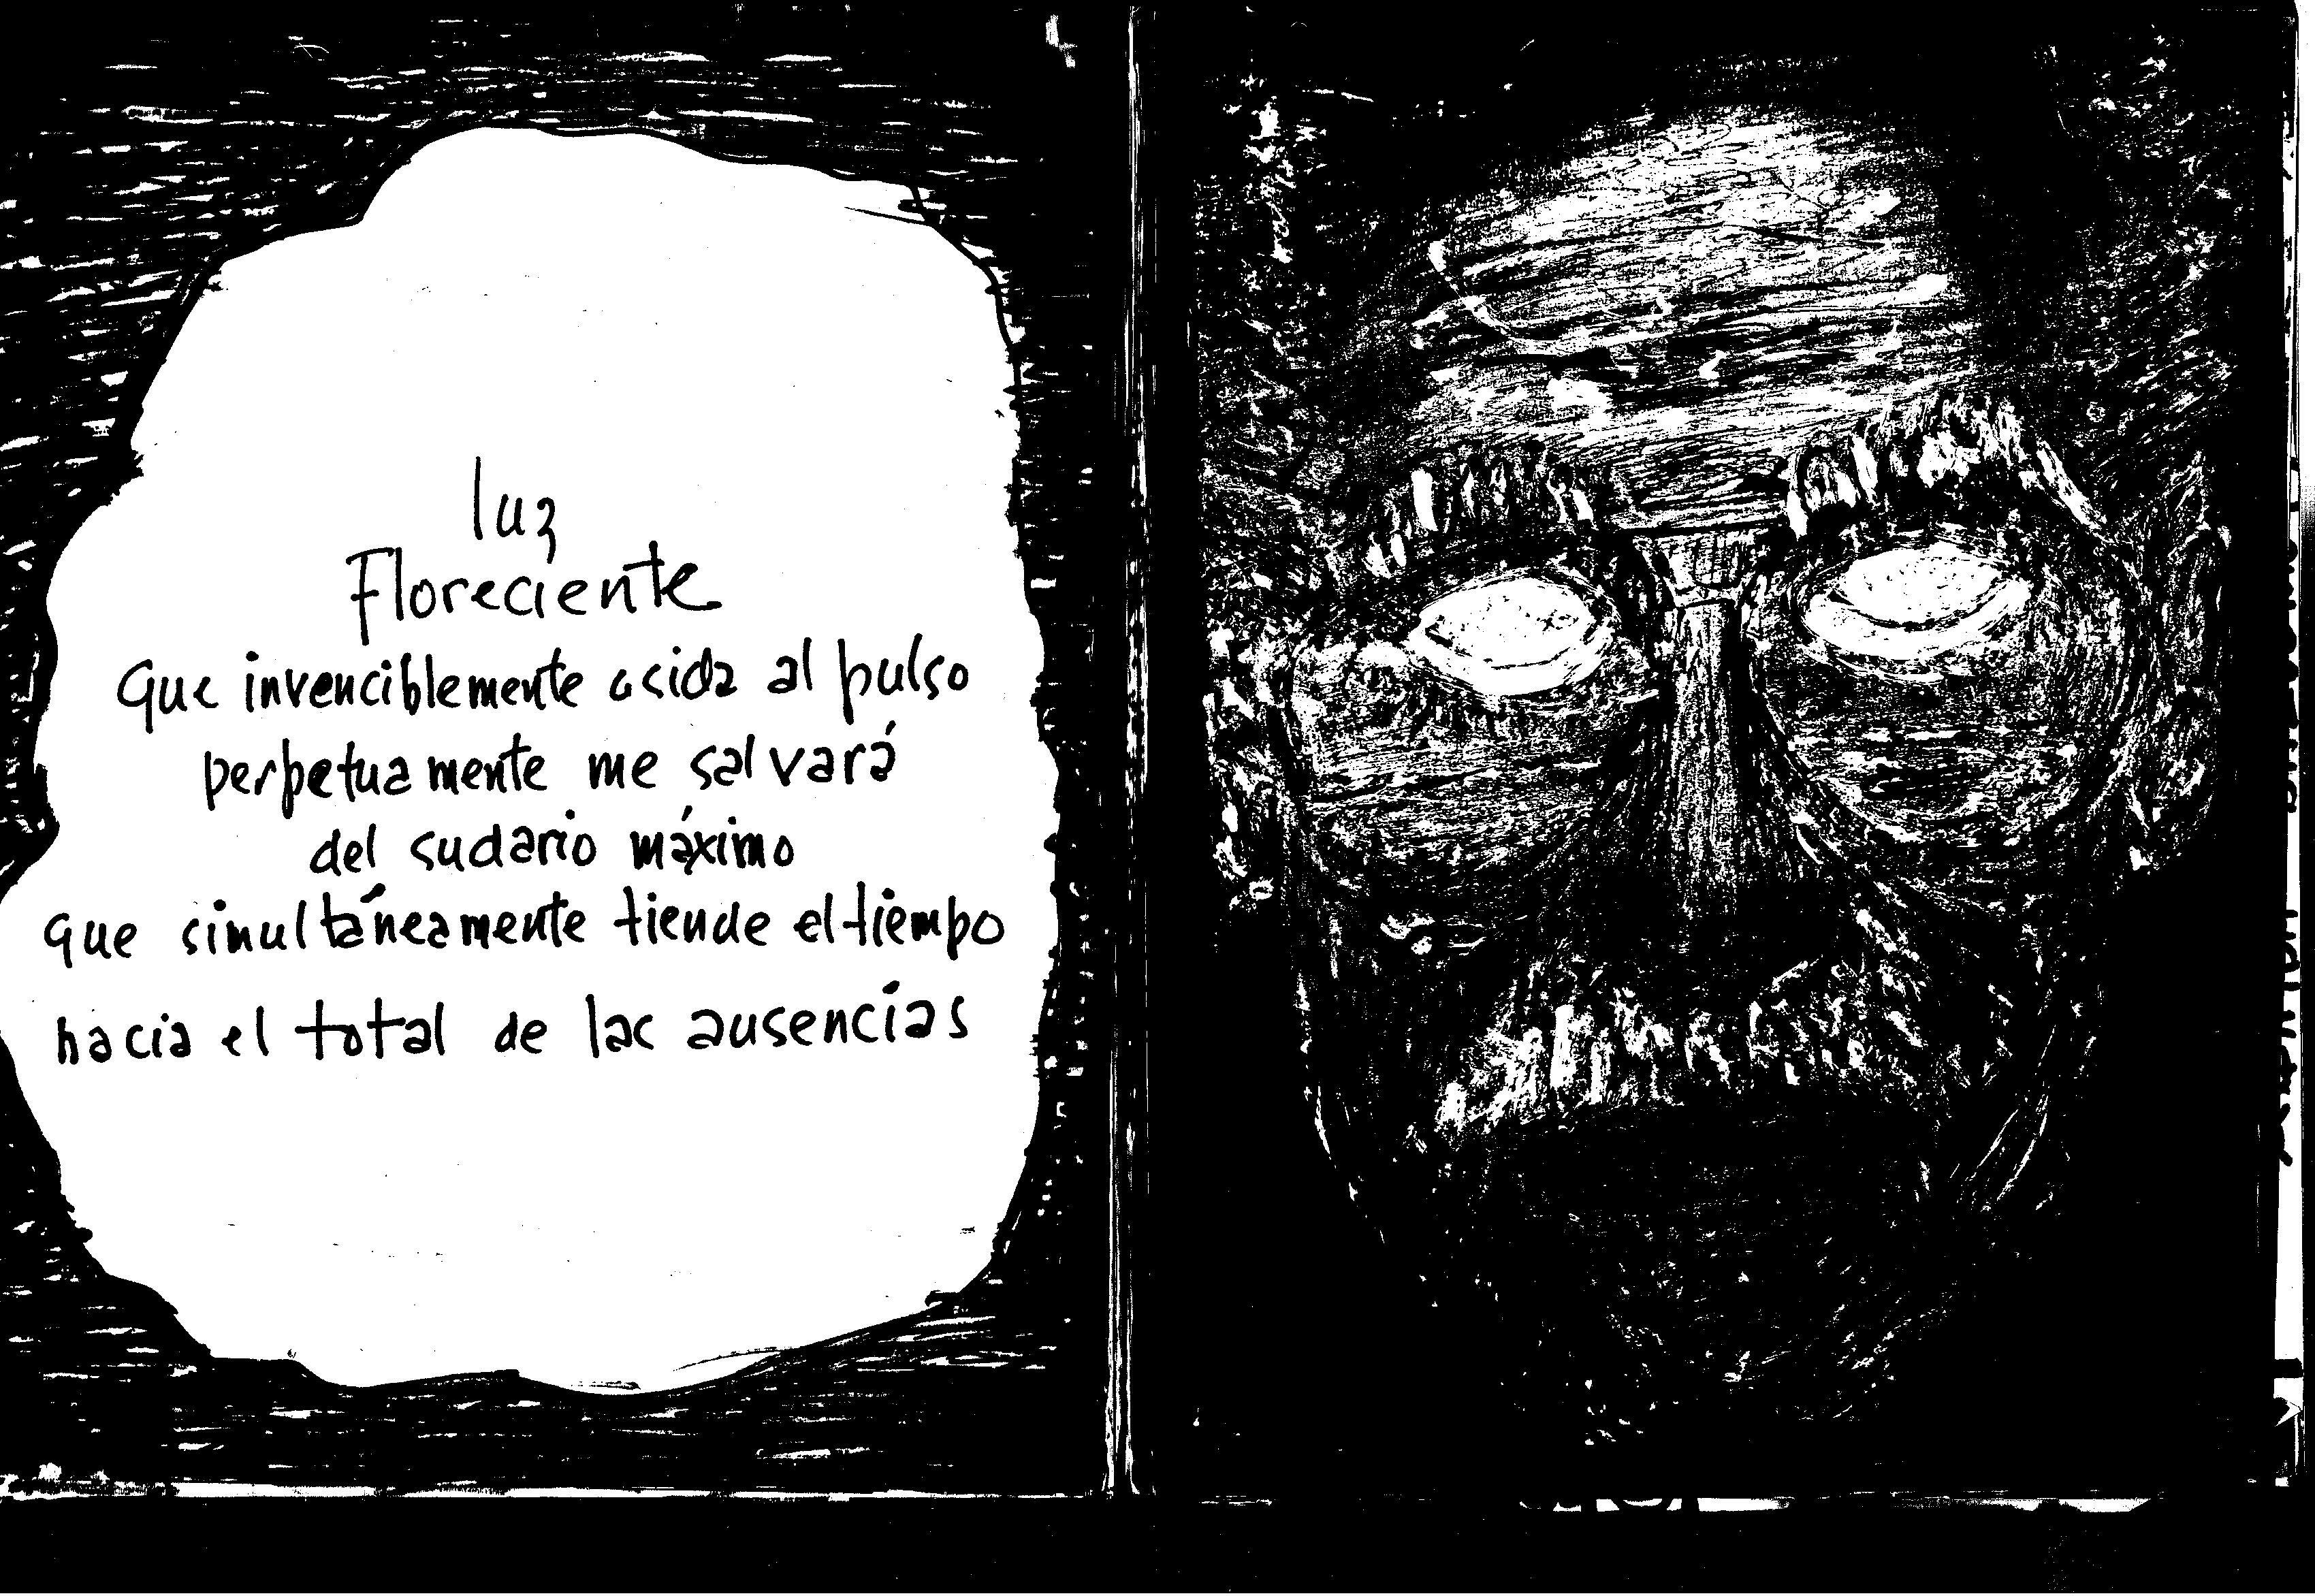 luz
Floreciente
Que invenciblemente asida al pulso
perpetuamente me salvará
del sudario máximo
que simultáneamente tiende el tiempo
hacia el total de las ausencias